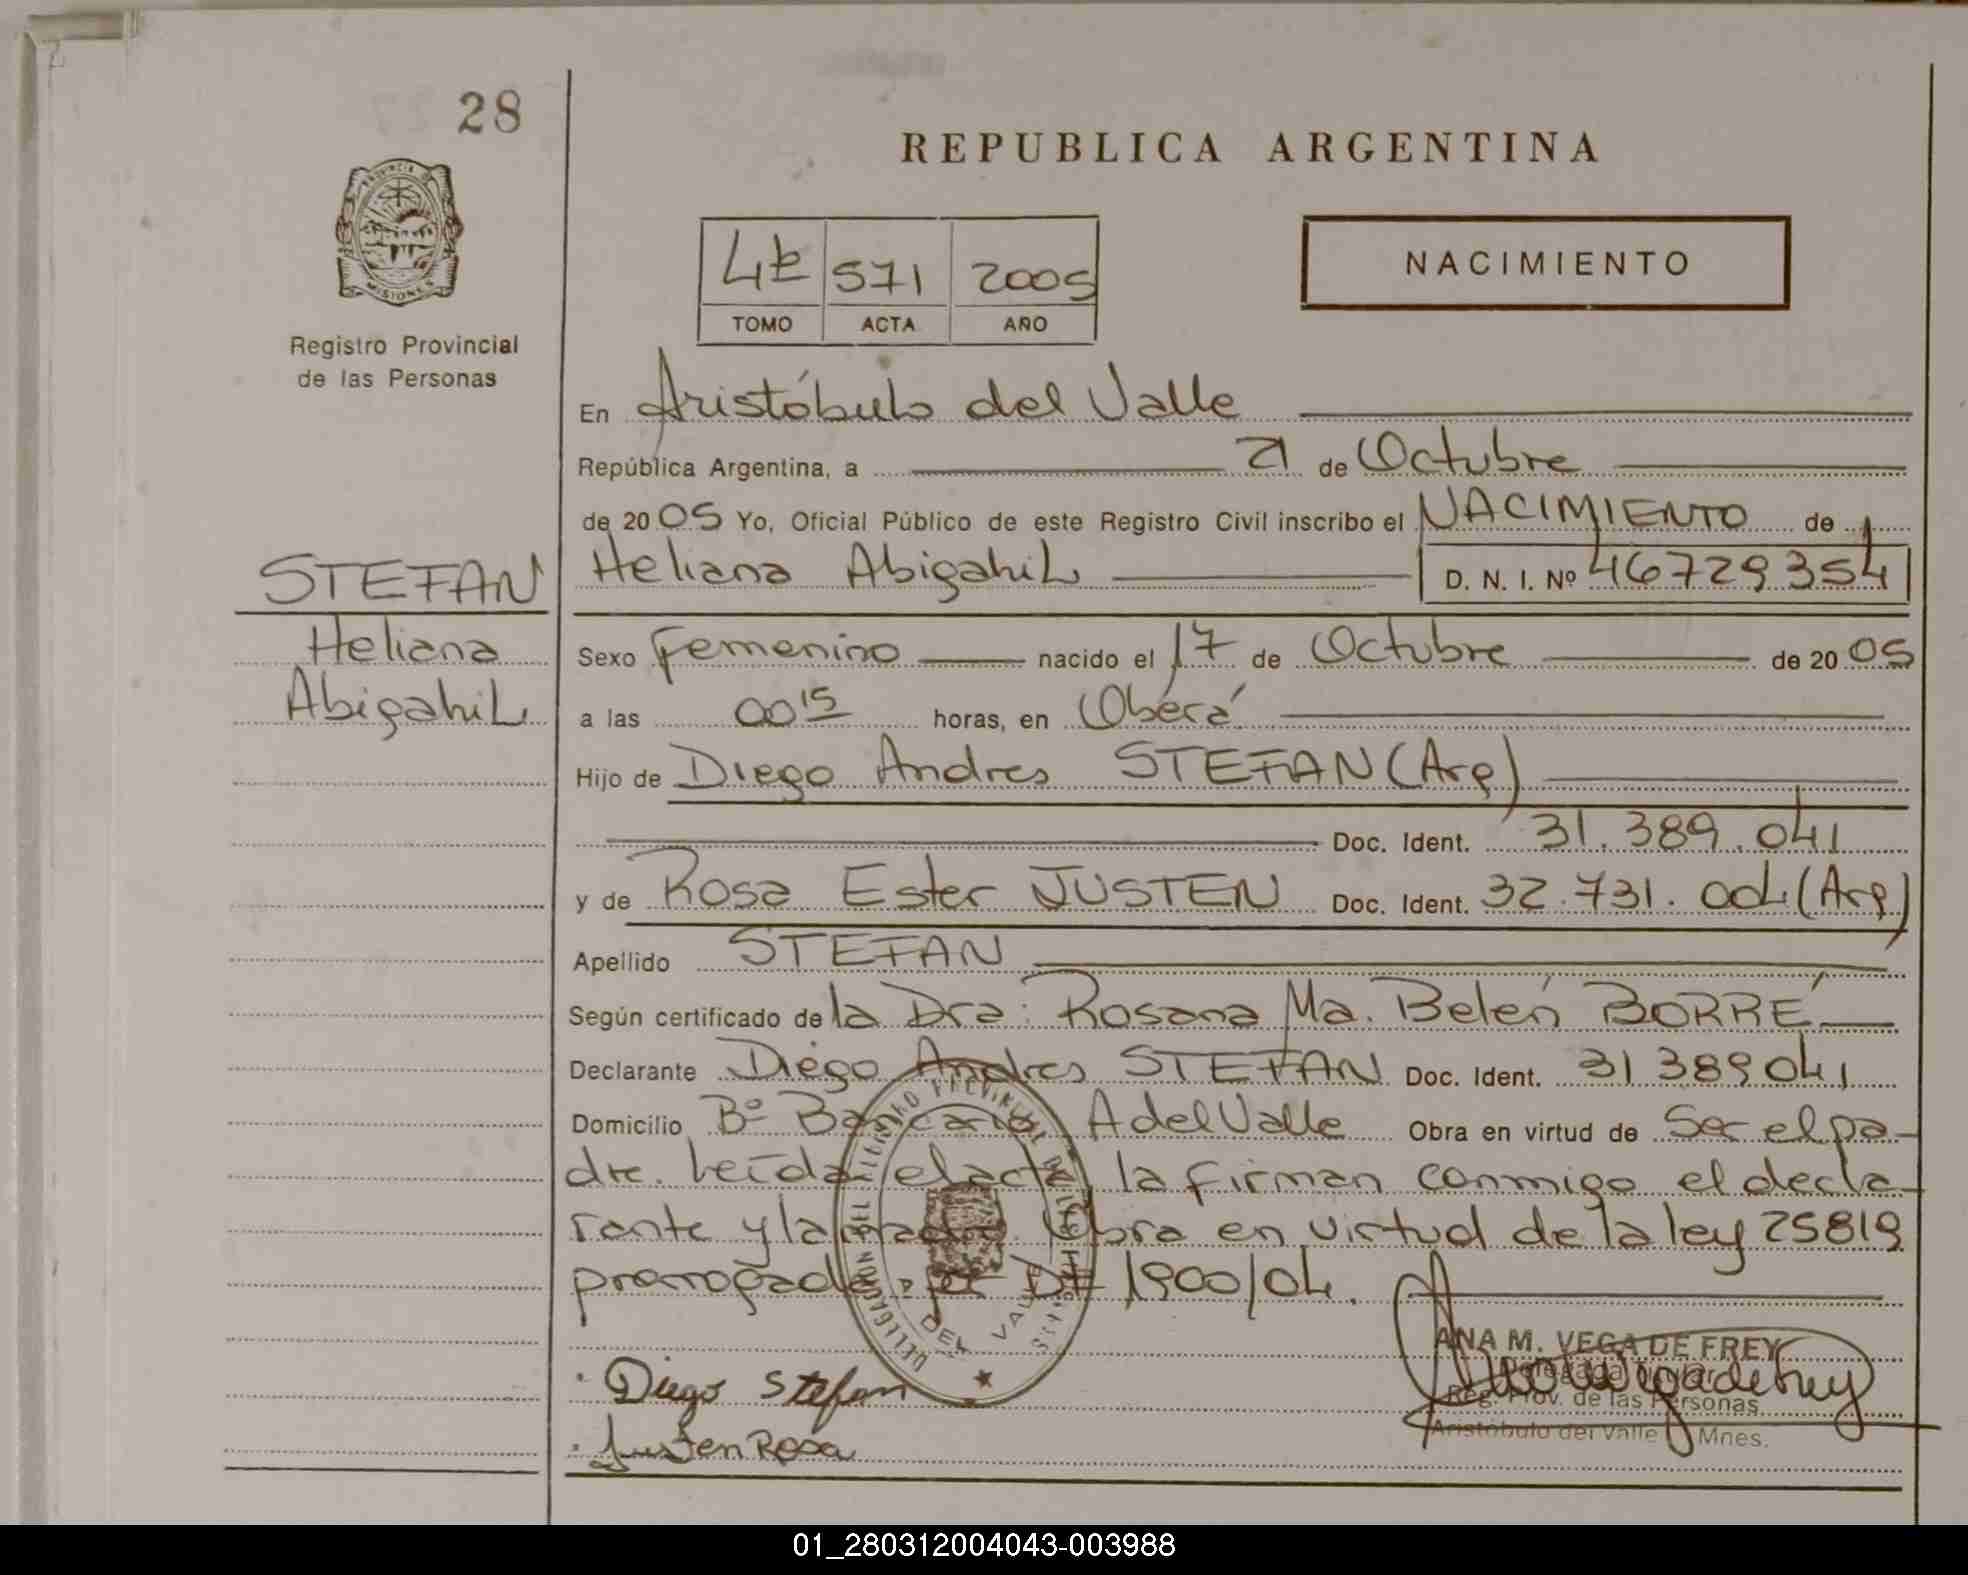 28
REPUBLICA ARGENTINA
PROVINCIA DE
MISIONES
Registro Provincial
de las Personas
571 2005
TOMO ACTA AÑO
NACIMIENTO
En Aristóbulo del Valle
República Argentina, a 21 de Octubre
de 2005 Yo, Oficial Público de este Registro Civil inscribo el NACIMIENTO de
Heliana Abigahil D. N. I. Nº 46729354
STEFAN
Heliana
Abigahil
Sexo Femenino nacido el 17 de Octubre de 2005
a las 00 15 horas, en Oberá
Hijo de Diego Andres STEFAN (Arg)
Doc. Ident. 31.389.041
y de Rosa Ester JUSTEN Doc. Ident. 32.731.004 (Arg)
Apellido STEFAN
Según certificado de la Dra: Rosana Ma. Belén BORRÉ
Declarante Diego Andres STEFAN Doc. Ident. 31389041
Domicilio Bº Bancario, A del Valle Obra en virtud de Ser el pa-
dre. Leída el acta la firman conmigo el decla-
rante y la madre. Obra en virtud de la ley 25819
prorrogada por 1900/04.
DEL VALLE
ANA M. VEGA DE FREY
Reg. Prov. de las Personas
Aristóbulo del Valle Mnes.
Diego Stefan
Justen Rosa
01_280312004043-003988